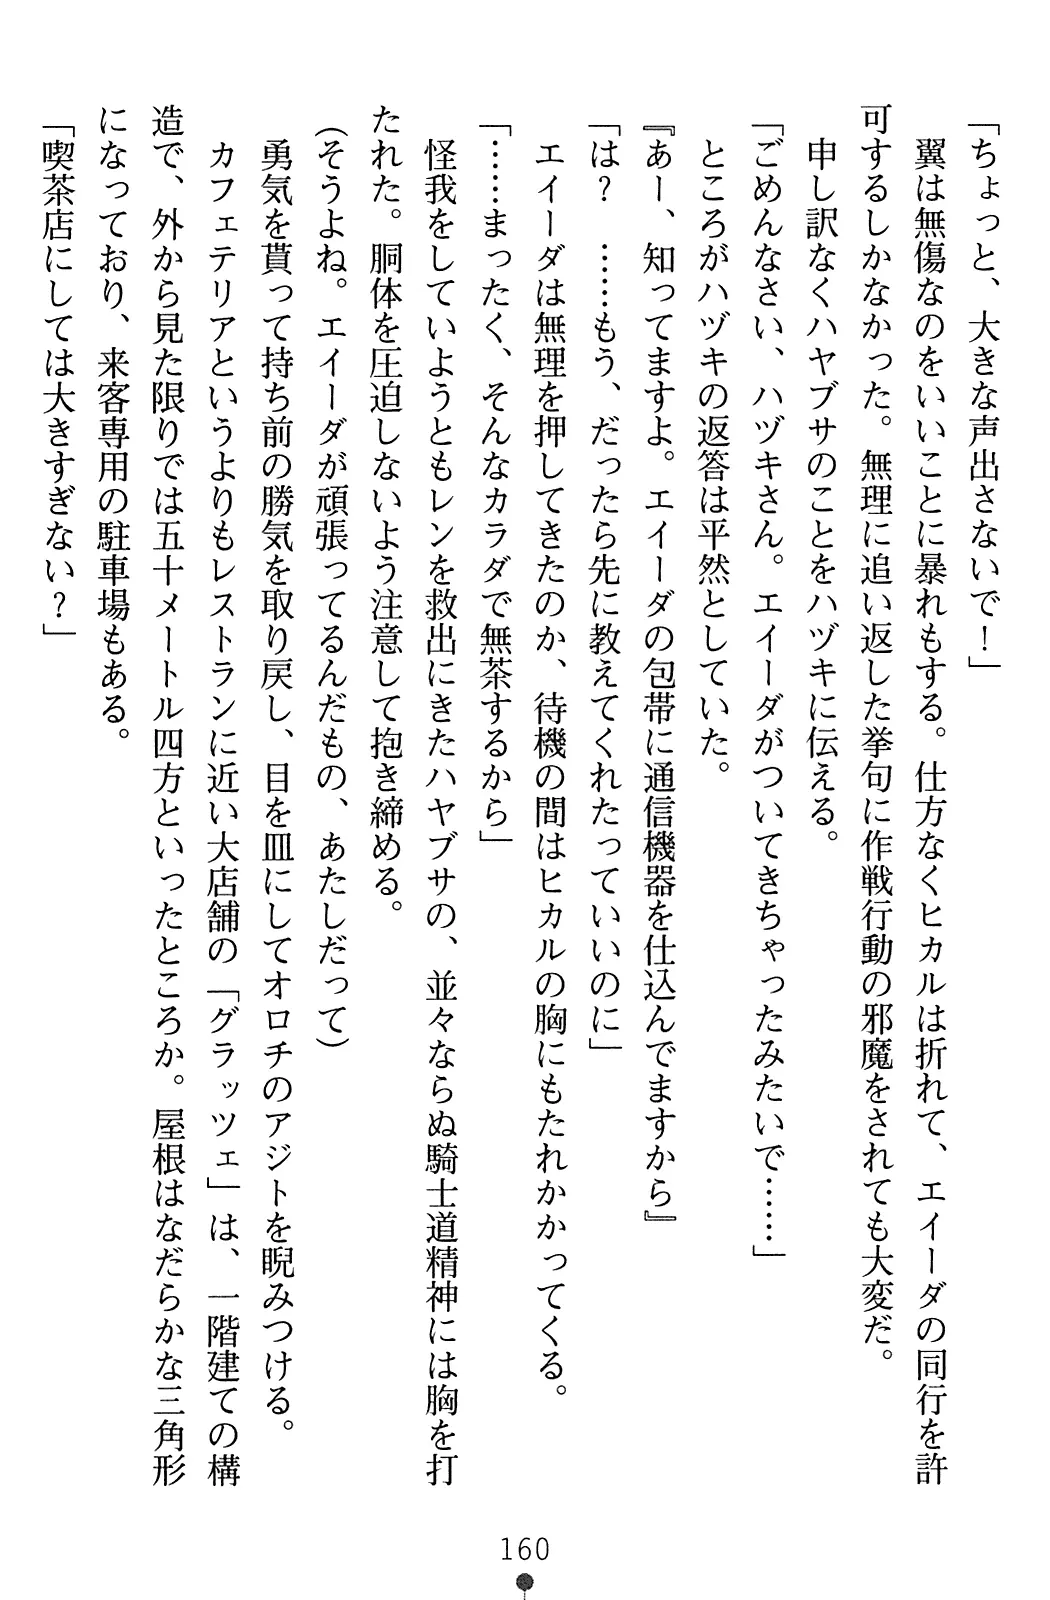 「ちょっと、大きな声出さないで！」
　翼は無傷なのをいいことに暴れもする。仕方なくヒカルは折れて、エイーダの同行を許
可するしかなかった。無理に追い返した挙句に作戦行動の邪魔をされても大変だ。
　申し訳なくハヤブサのことをハヅキに伝える。
「ごめんなさい、ハヅキさん。エイーダがついてきちゃったみたいで……」
　ところがハヅキの返答は平然としていた。
『あー、知ってますよ。エイーダの包帯に通信機器を仕込んでますから』
「は？　……もう、だったら先に教えてくれたっていいのに」
　エイーダは無理を押してきたのか、待機の間はヒカルの胸にもたれかかってくる。
「……まったく、そんなカラダで無茶するから」
　怪我をしていようともレンを救出にきたハヤブサの、並々ならぬ騎士道精神には胸を打
たれた。胴体を圧迫しないよう注意して抱き締める。
（そうよね。エイーダが頑張ってるんだもの、あたしだって）
　勇気を貰って持ち前の勝気を取り戻し、目を皿にしてオロチのアジトを睨みつける。
　カフェテリアというよりもレストランに近い大店舗の「グラッツェ」は、一階建ての構
造で、外から見た限りでは五十メートル四方といったところか。屋根はなだらかな三角形
になっており、来客専用の駐車場もある。
「喫茶店にしては大きすぎない？」
160